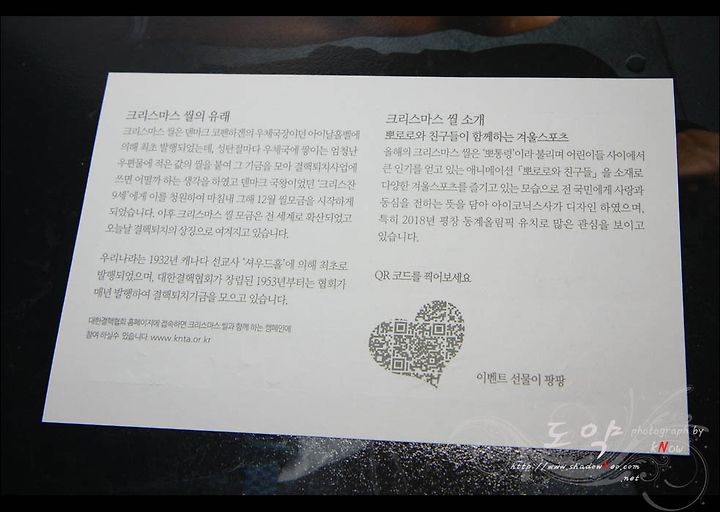 크리스마스 씰의 유래
크리스마스 씰은 덴마크 코펜하겐의 우체국장이던 아이날홀벨에
의해 최초 발행되었는데, 성탄절마다 우체국에 쌓이는 엄청난
우편물에 적은 값의 씰을 붙여 그 기금을 모아 결핵퇴치사업에
쓰면 어떨까 하는 생각을 하였고 덴마크 국왕이었던 '크리스찬
9세'에게 이를 청원하여 마침내 그해 12월 씰모금을 시작하게
되었습니다. 이후 크리스마스 씰 모금은 전 세계로 확산되었고
오늘날 결핵퇴치의 상징으로 여겨지고 있습니다.
우리나라는 1932년 캐나다 선교사 '셔우드홀'에 의해 최초로
발행되었으며, 대한결핵협회가 창립된 1953년부터는 협회가
매년 발행하여 결핵퇴치기금을 모으고 있습니다.
대한결핵협회 홈페이지에 접속하면 크리스마스 씰과 함께 하는 캠페인에
참여 하실수 있습니다. www.knta.or.kr
크리스마스 씰 소개
뽀로로와 친구들이 함께하는 겨울스포츠
올해의 크리스마스 씰은 '뽀통령'이라 불리며 어린이들 사이에서
큰 인기를 얻고 있는 애니메이션 「뽀로로와 친구들」을 소재로
다양한 겨울스포츠를 즐기고 있는 모습으로 전 국민에게 사랑과
동심을 전하는 뜻을 담아 아이코닉스사가 디자인 하였으며,
특히 2018년 평창 동계올림픽 유치로 많은 관심을 보이고
있습니다.
QR 코드를 찍어보세요.
이벤트 선물이 팡팡
도약
photograph by
kNow
http://www.shadowNoo.com
.net